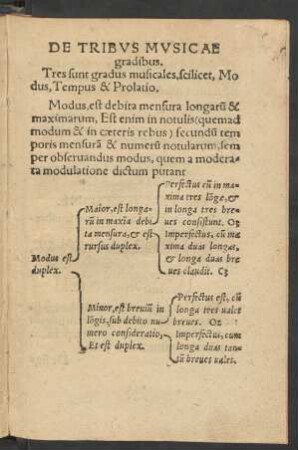 DE TRIBVS MVSICAE
gradibus.
Tres sunt gradus musicales, scilicet, Mo
dus, Tempus & Prolatio.
Modus, est debita mensura longarū &
maximarum, Est enim in notulis (quemad
modum & in cæteris rebus) secundū tem
poris mensurā & numerū notularum, sem
per obseruandus modus, quem a modera-
ta modulatione dictum putant
Modus est
duplex.
Maior, est longa-
rū in maxīa debi
ta mensura, & est
rursus duplex.
Perfectus cū in ma
xima tres lōgæ, &
in longa tres bre
ues consistunt. O3
Imperfectus, cū ma
xima duas longas,
& longa duas bre
ues claudit. C3
Minor, est breuiū in
lōgis, sub debito nu
mero consideratio,
Et est duplex.
Perfectus est, cū
longa tres ualet
breues. O2
Imperfectus, cum
longa duas tan-
tū breues ualet.